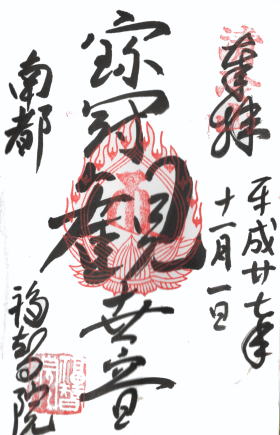 奉拝
平成廿七年
十一月一日
宝冠観世音
南都
福智院